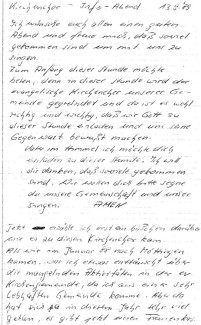 Kirchenchor - Info - Abend 13.2.89
Ich wünsche euch allen einen guten
Abend und freue mich, daß soviel
gekommen sind um mit uns zu
singen.
Zum Anfang dieser Stunde möchte
beten, denn in dieser Stunde wird der
evangelische Kirchenchor unserer Ge-
meinde gegründet und da ist es wohl
richtig und wichtig, daß wir Gott zu
dieser Stunde einladen und uns seine
Gegenwart bewußt machen:
Vater im Himmel ich möchte dich
einladen zu dieser Stunde. Ich will
dir danken, daß soviele gekommen
sind. Wir bitten dich Herr segne
du unsere Gemeinschaft und unser
singen. AMEN
Jetzt erzähle ich erst ein bißchen darüber
wie es zu diesem Kirchenchor kam.
Als wir im Januar nach
kamen war ich etwas enttäuscht über
die mangelnden Aktivitäten in der ev.
Kirchengemeinde, da ich aus einer sehr
lebhaften Gemeinde komme. Aber da
hat sich ja in einem Jahr sehr viel
getan, es gibt jetzt einen Frauenkreis